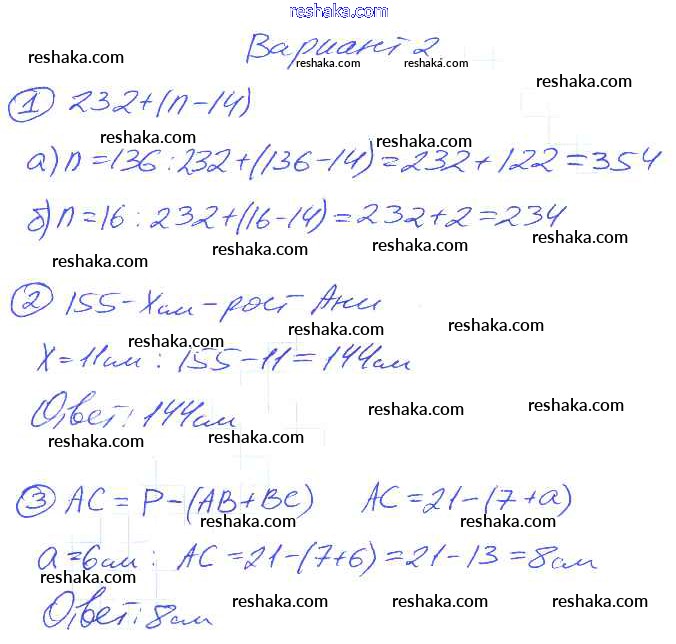 reshaka.com
Вариант 2
reshaka.com reshaka.com reshaka.com
① 232+(n-14)
reshaka.com
reshaka.com reshaka.com
а) n=136 : 232+(136-14)=232+122=354
б) n=16 : 232+(16-14)=232+2=234
reshaka.com reshaka.com reshaka.com reshaka.com
② 155-Xсм-рост Ани
reshaka.com reshaka.com reshaka.com
X=11см : 155-11=144см
Ответ: 144см
reshaka.com reshaka.com reshaka.com reshaka.com
③ AC = P-(AB+BC) AC=21-(7+a)
reshaka.com reshaka.com
a=6см : AC=21-(7+6)=21-13=8см
reshaka.com
Ответ: 8см
reshaka.com reshaka.com reshaka.com